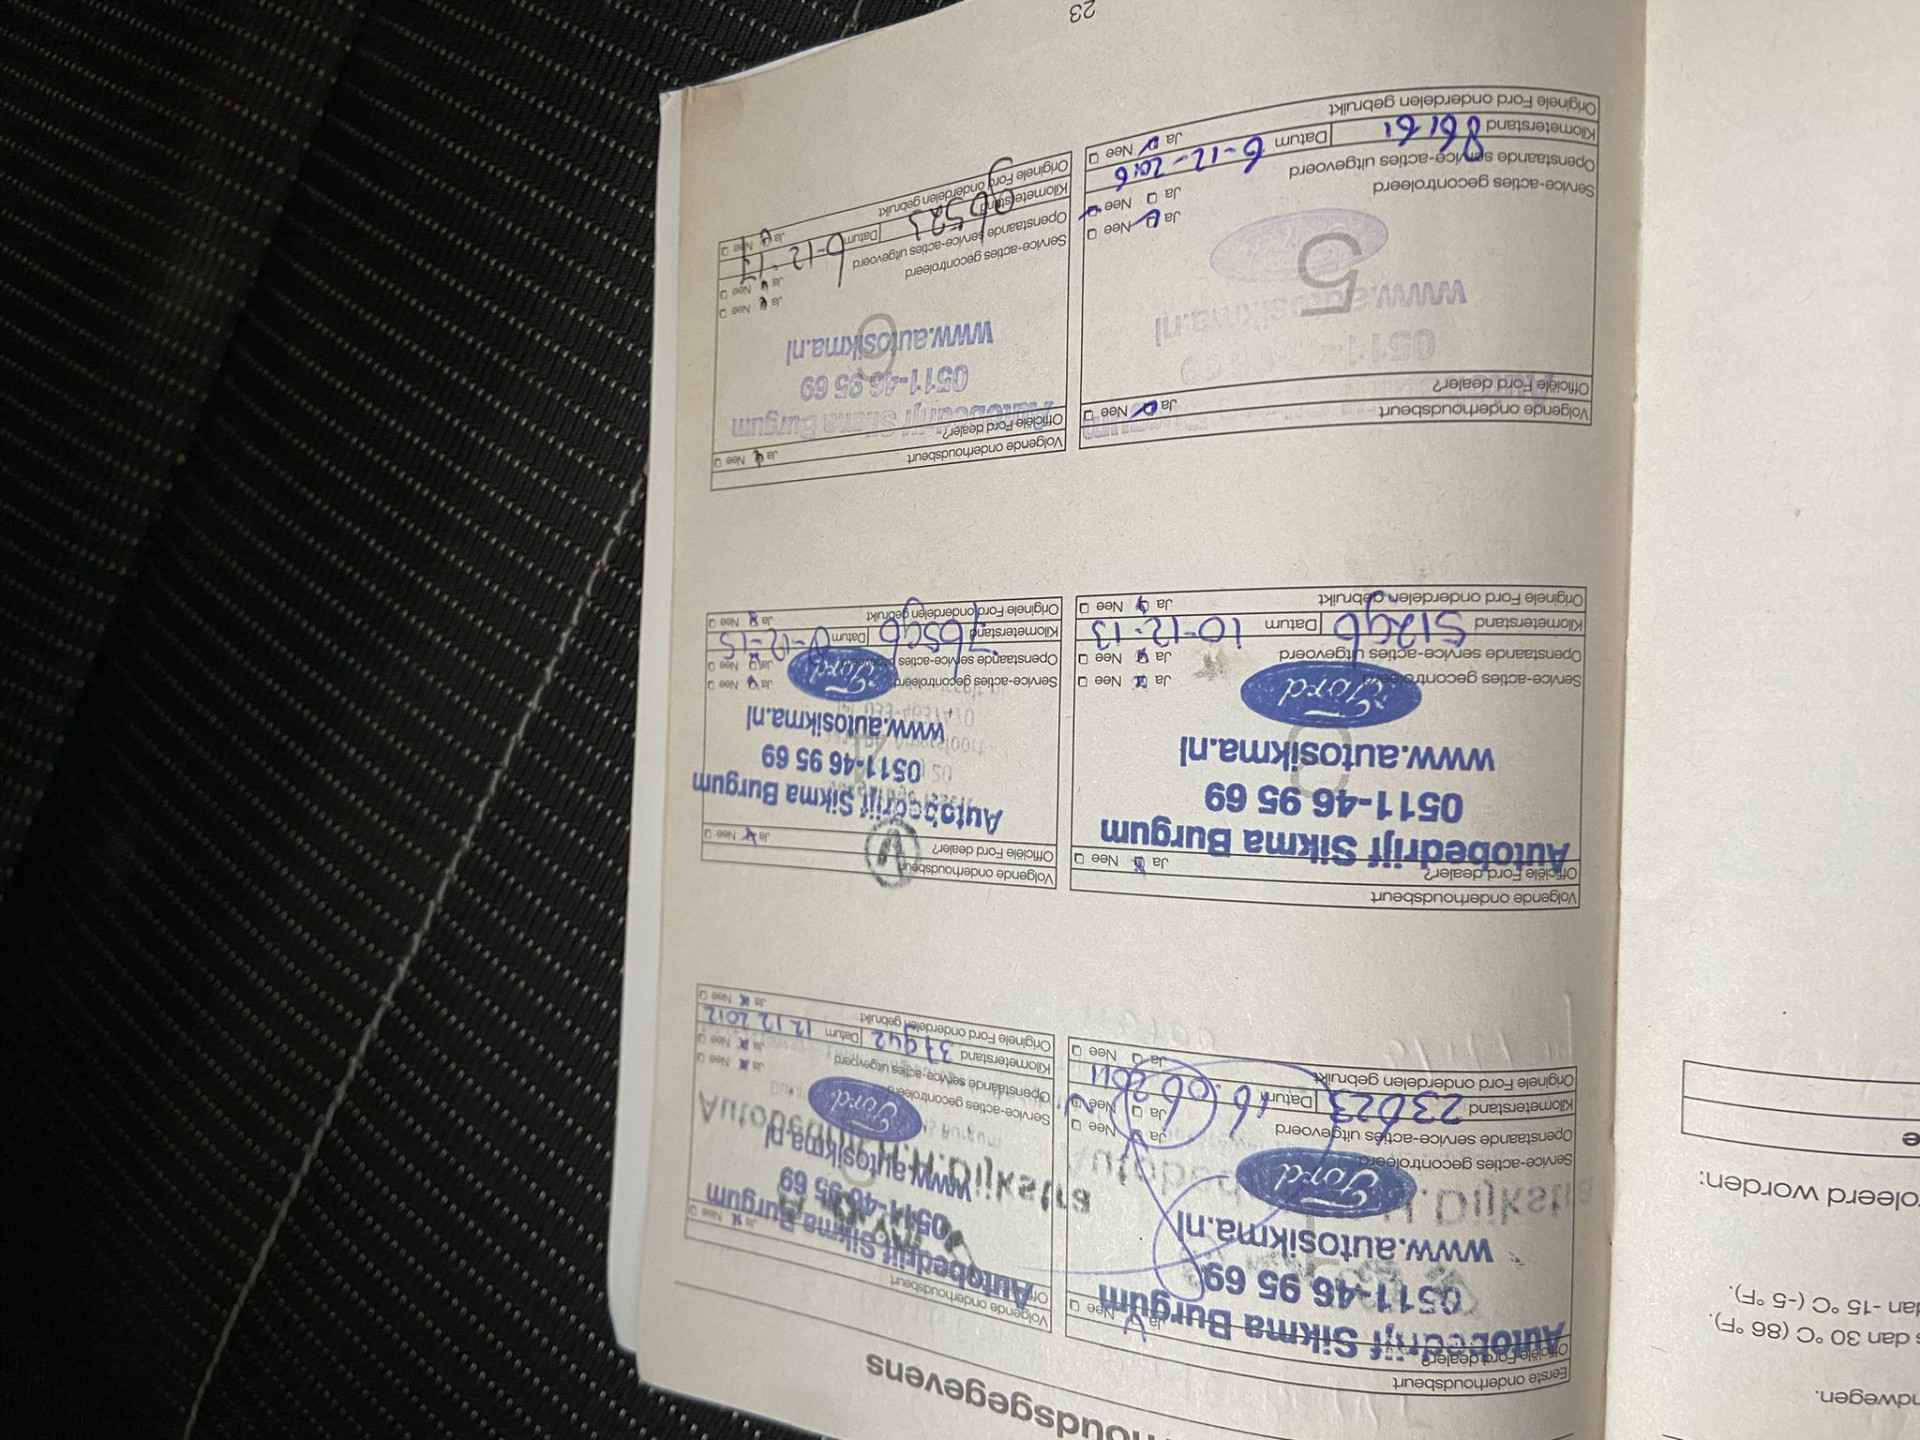 houdsgegevens
Eerste onderhoudsbeurt
Officiële Ford dealer? Ja Nee
Autobedrijf Sikma Burgum
0511-46 95 69
www.autosikma.nl
Ford
Dijkstra
Service-acties gecontroleerd Ja Nee
Openstaande service-acties uitgevoerd Ja Nee
Kilometerstand 23623 Datum
Originele Ford onderdelen gebruikt Ja Nee
Volgende onderhoudsbeurt
Ja Nee
Autobedrijf Sikma Burgum
0511-46 95 69
www.autosikma.nl
Autobedrijf H.H. Dijkstra
Ford
Service-acties gecontroleerd Ja Nee
Openstaande service-acties uitgevoerd Ja Nee
Kilometerstand 37942 Datum 12 12 2012
Originele Ford onderdelen gebruikt Ja Nee
Volgende onderhoudsbeurt
Officiële Ford dealer? Ja Nee
Autobedrijf Sikma Burgum
0511-46 95 69
www.autosikma.nl
Ford
Service-acties gecontroleerd Ja Nee
Openstaande service-acties uitgevoerd Ja Nee
Kilometerstand 51296 Datum 10-12-13
Originele Ford onderdelen gebruikt Ja Nee
Volgende onderhoudsbeurt
Officiële Ford dealer? Ja Nee
Autobedrijf Sikma Burgum
0511-46 95 69
www.autosikma.nl
Ford
Service-acties gecontroleerd Ja Nee
Openstaande service-acties Ja Nee
Kilometerstand 76596 Datum
Originele Ford onderdelen gebruikt Ja Nee
Volgende onderhoudsbeurt
Officiële Ford dealer? Ja Nee
0511
www.autosikma.nl
5
Service-acties gecontroleerd Ja Nee
Openstaande service-acties uitgevoerd Ja Nee
Kilometerstand 86161 Datum 6-12-2016
Originele Ford onderdelen gebruikt Ja Nee
Volgende onderhoudsbeurt
Officiële Ford dealer? Ja Nee
Autobedrijf Sikma Burgum
0511-46 95 69
www.autosikma.nl
Service-acties gecontroleerd Ja Nee
Openstaande service-acties uitgevoerd Ja Nee
Kilometerstand 96523 Datum 6-12-17
Originele Ford onderdelen gebruikt Ja Nee
23
ndwegen.
dan 30 °C (86 °F).
dan -15 °C (-5 °F).
oleerd worden:
e